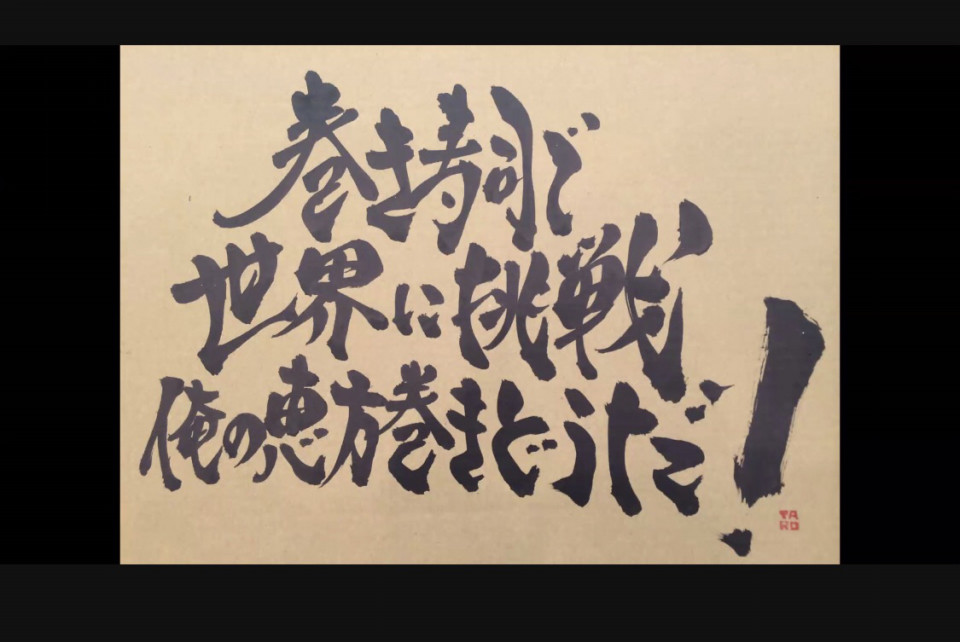 巻き寿司で
世界に挑戦
俺の恵方巻きどうだ!
TA
KO